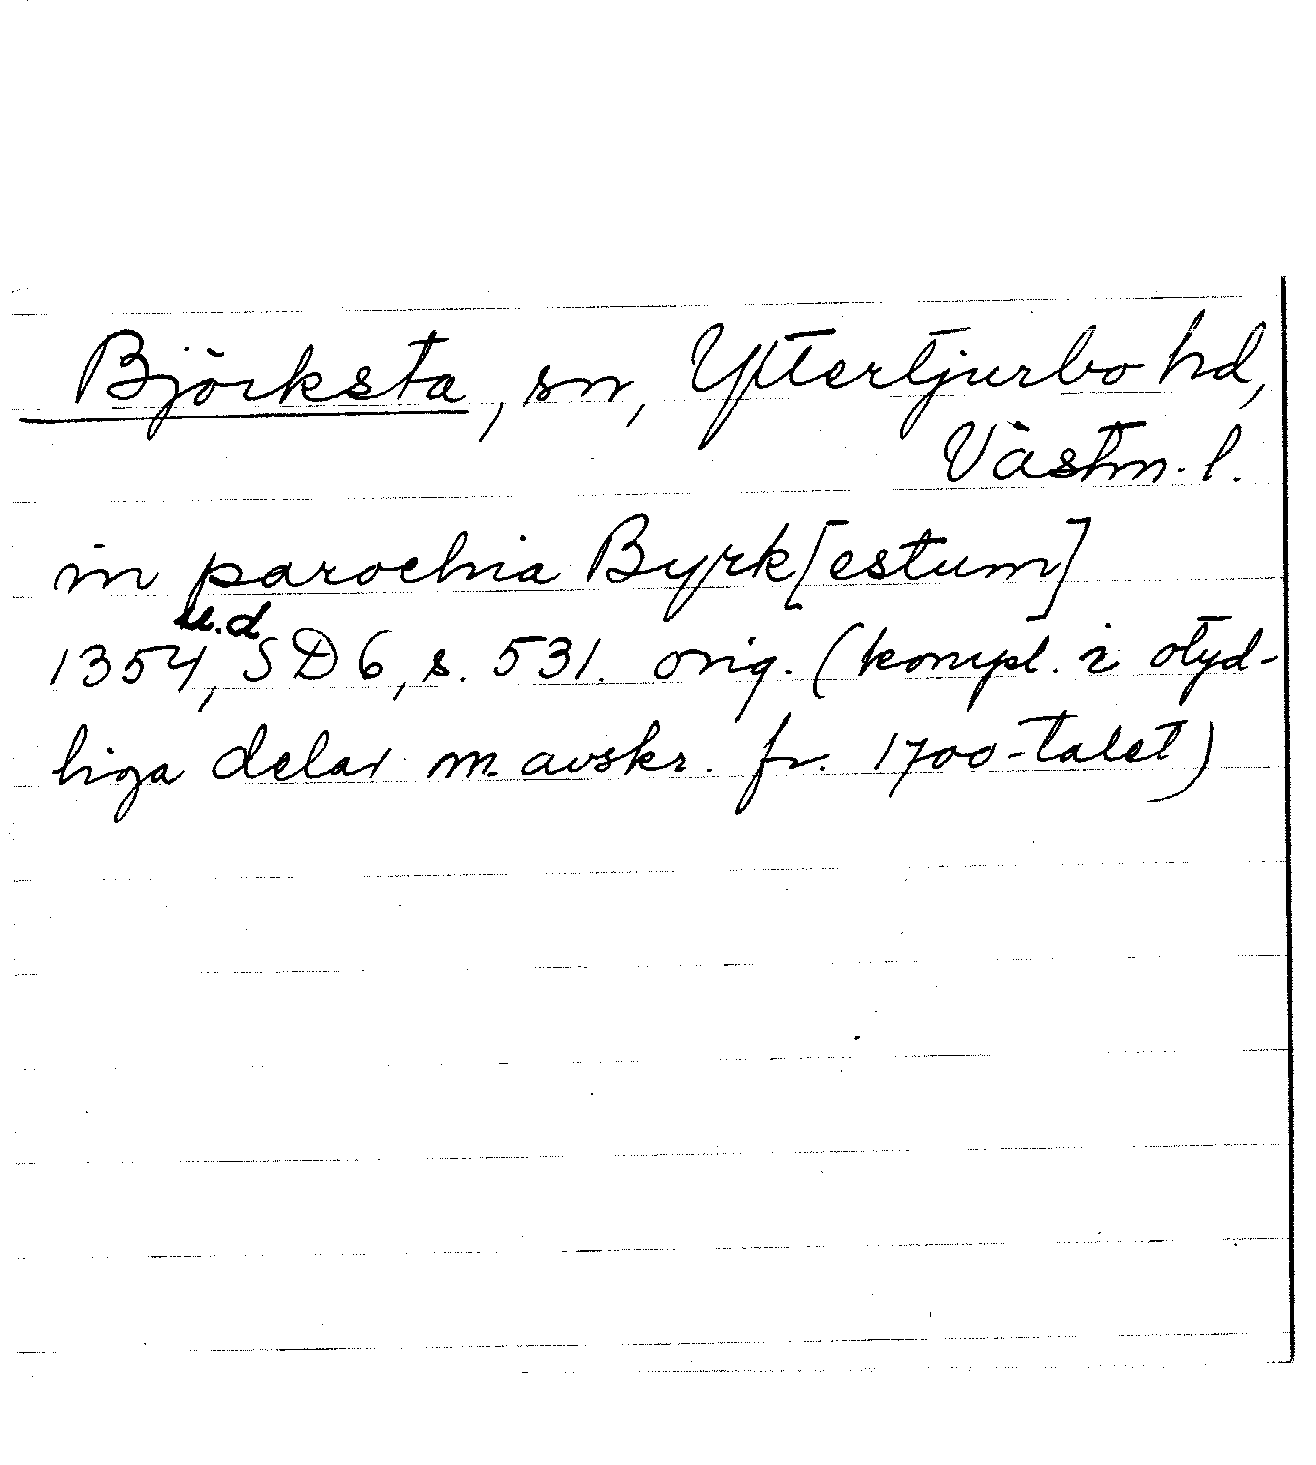 Björksta, sn, Yttertjurbo hd,
Västm. l.
in parochia Byrk[estum]
1354 u.d, SD 6, s. 531. orig. (kompl. i otyd-
liga delar m avskr. fr. 1700-talet)